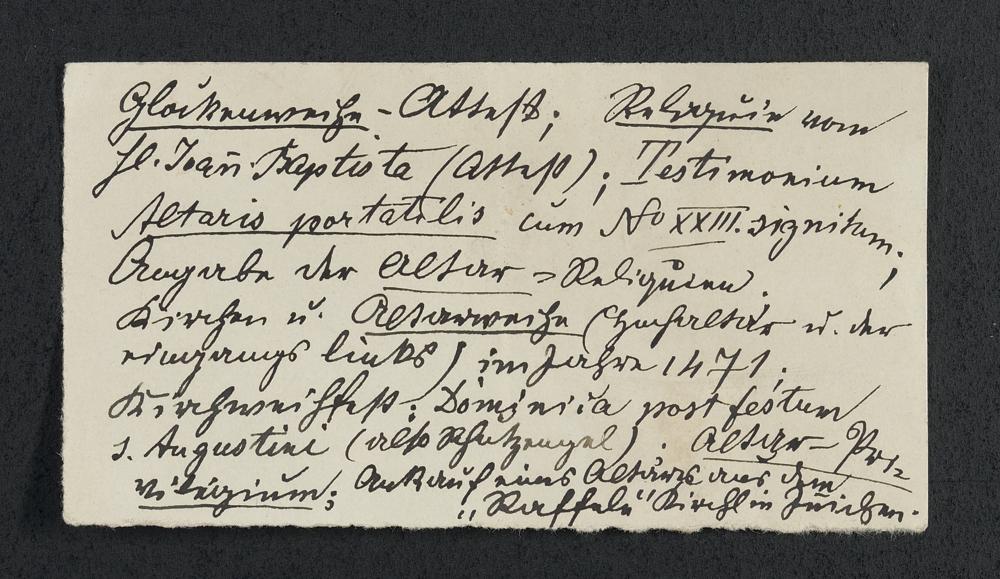 Glockenweihe - Attest; Reliquie vom
hl. Joan̄. Baptista (Attest); Testimonium
Altaris portatilis cum No XXIII. signitum;
Angabe der Altar-Reliquien.
Kirchen u. Altarweihe (Hochaltar u. der
eingangs links) im Jahre 1471.
Kirchweihfest: Dominica post festum
s. Augustini (also Schutzengel). Altar-Pri-
vilegium; Ankauf eines Altares aus dem
"Raffele" Kirchl in